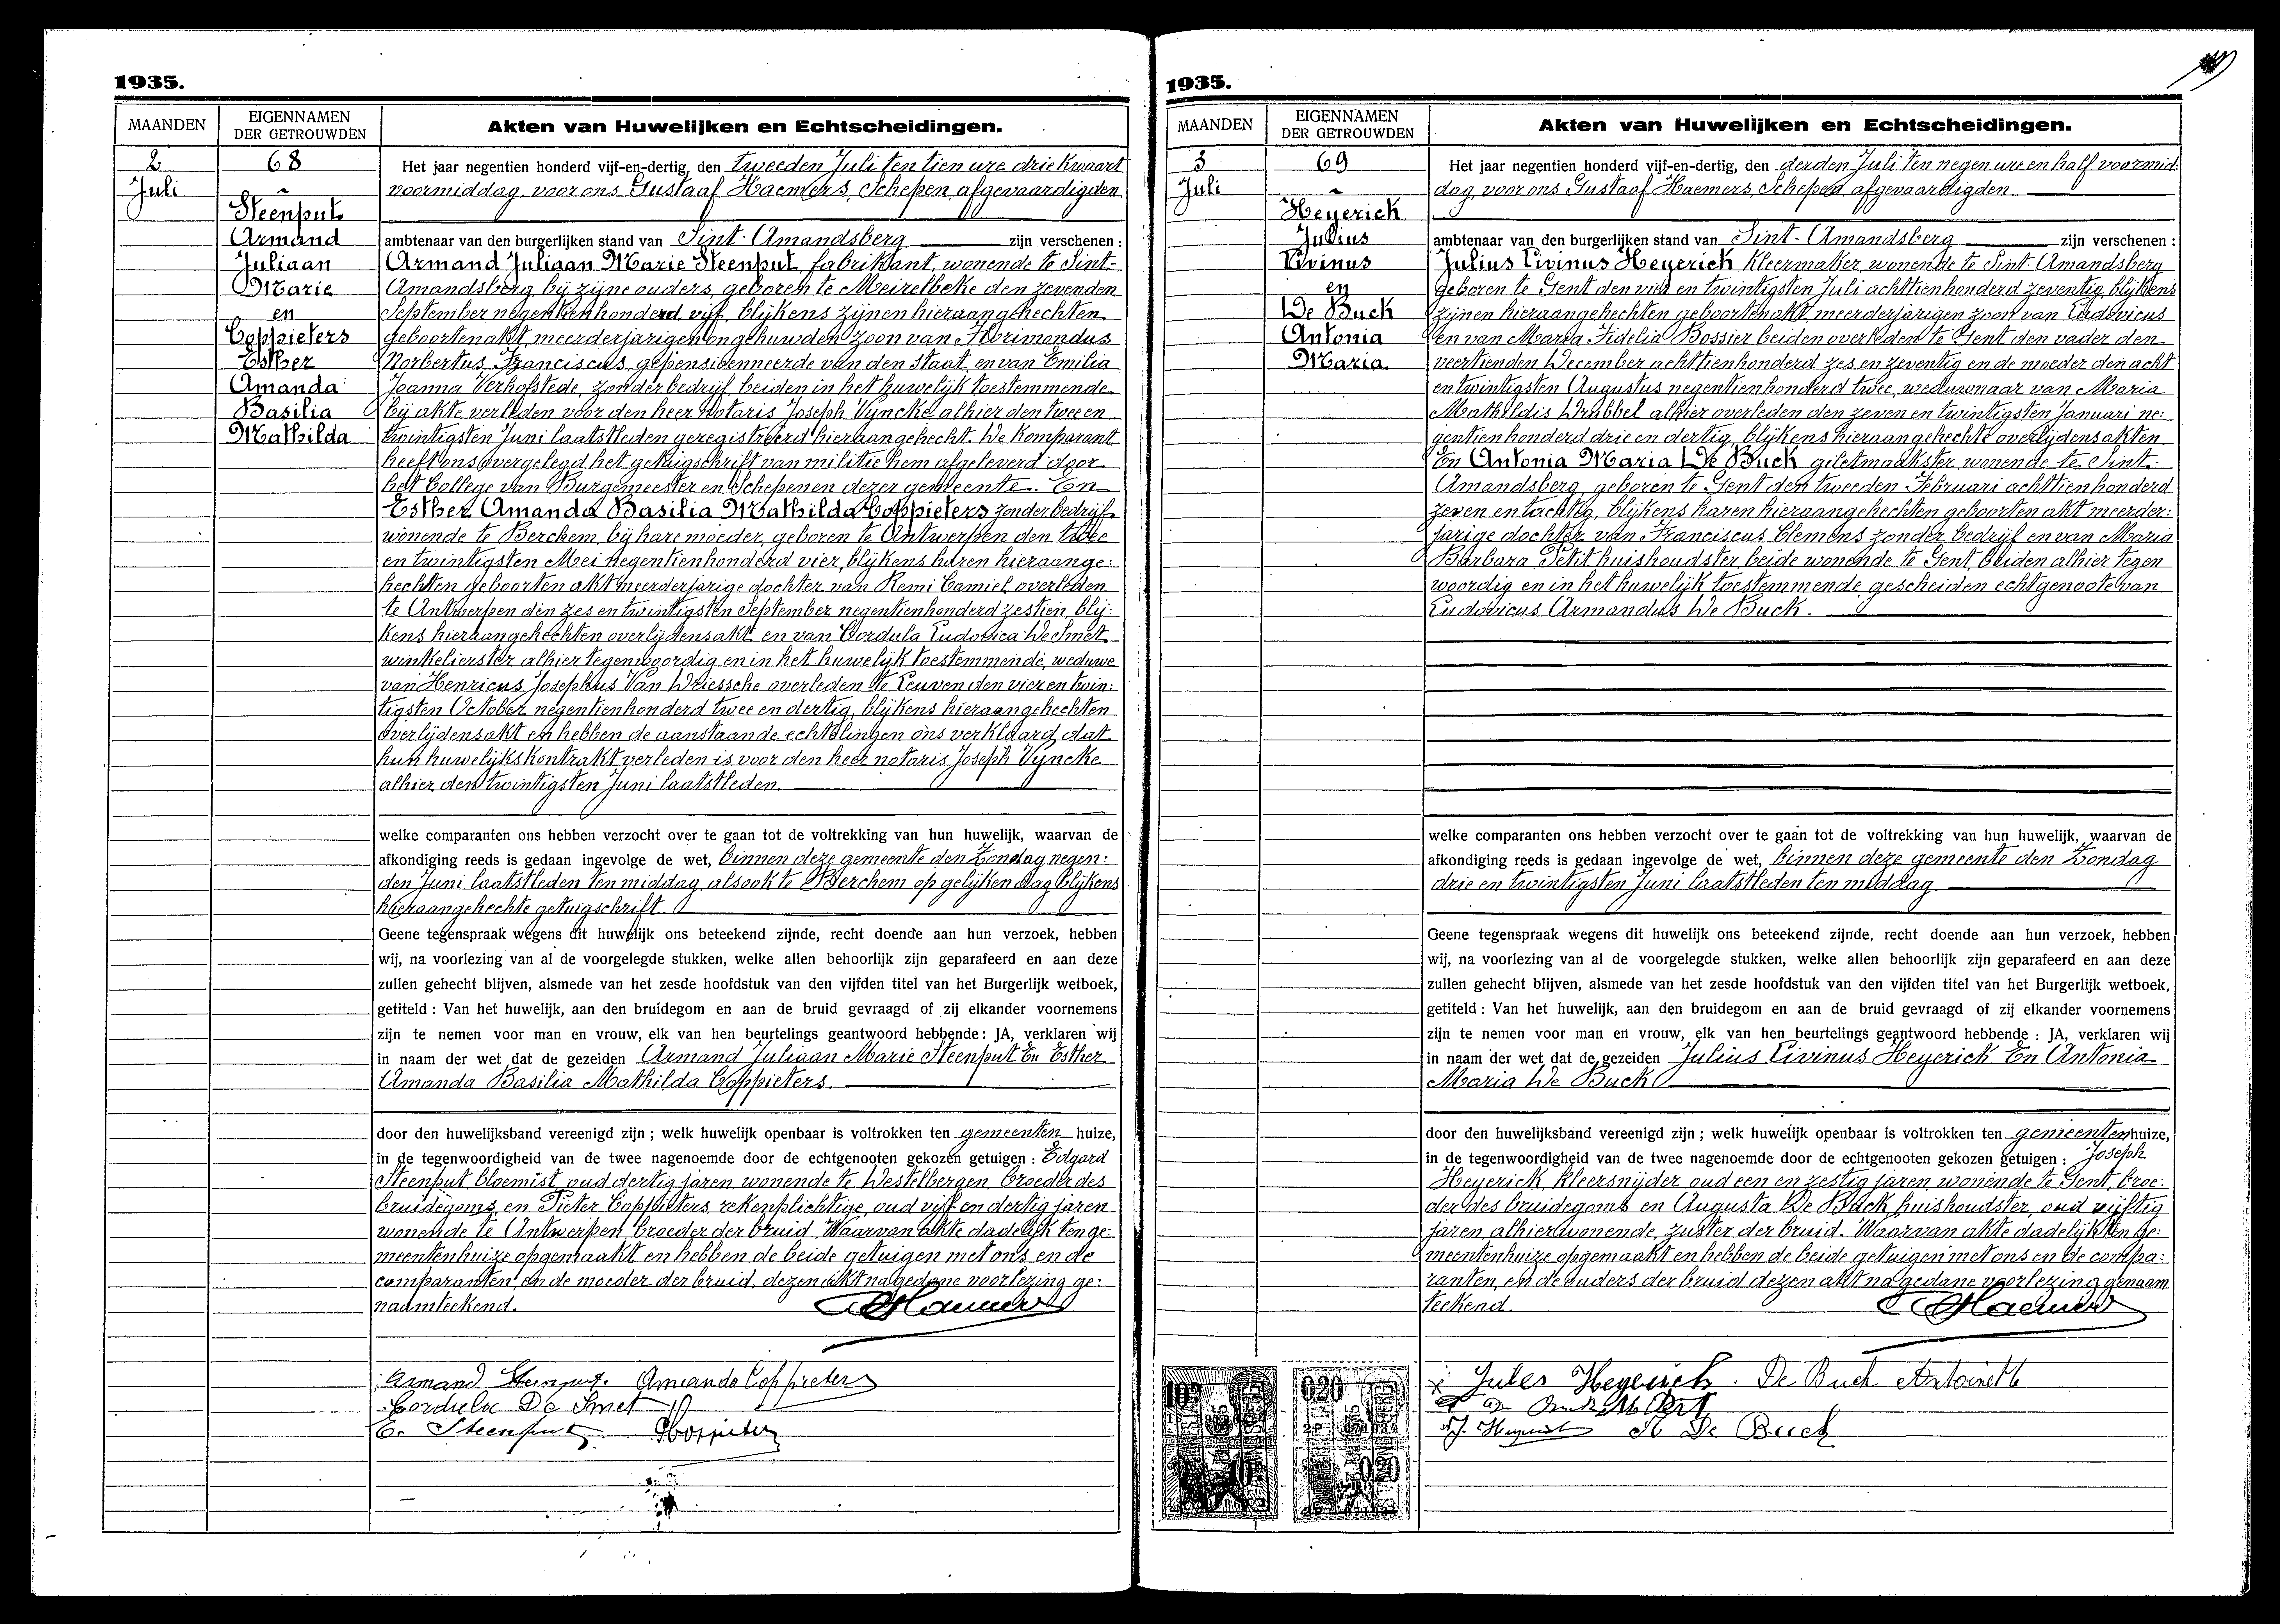 1935.
MAANDEN
EIGENNAMEN
DER GETROUWDEN
Akten van Huwelijken en Echtscheidingen.
2
Juli
68
Steenput
Armand
Juliaan
Marie
en
Coppieters
Esther
Amanda
Basilia
Mathilda
Het jaar negentien honderd vijf-en-dertig, den tweeden Juli ten tien ure drie kwaart
voormiddag, voor ons Gustaaf Haemers, Schepen, afgevaardigden
ambtenaar van den burgerlijken stand van Sint-Amandsberg zijn verschenen :
Armand Juliaan Marie Steenput, fabrikant, wonende te Sint-
Amandsberg, bij zijne ouders, geboren te Meirelbeke den zevenden
September negentienhonderd vijf, blijkens zijnen hieraangehechten
geboortenakt, meerderjarigen ongehuwden zoon van Florimondus
Norbertus Franciscus, gepensioenneerde van den Staat, en van Emilia
Joanna Verhofstede, zonder bedrijf, beiden in het huwelijk toestemmende
bij akte verleden voor den heer notaris Joseph Vyncke alhier den twee en
twintigsten Juni laatstleden geregistreerd hieraangehecht. De komparant
heeft ons overgelegd het getuigschrift van militie hem afgeleverd door
het College van Burgemeester en Schepenen dezer gemeente. En
Esther Amanda Basilia Mathilda Coppieters zonder bedrijf,
wonende te Berchem, bij hare moeder, geboren te Antwerpen den twee
en twintigsten Mei negentienhonderd vier, blijkens haren hieraange:
hechten geboorten akt meerderjarige dochter van Remi Camiel, overleden
te Antwerpen den zes en twintigsten September negentienhonderd zestien, blij:
kens hieraangehechten overlijdensakt, en van Cordula Ludovica De Smet
winkelierster alhier tegenwoordig en in het huwelijk toestemmende, weduwe
van Henricus Josephus Van Driessche overleden te Leuven den vier en twin:
tigsten October negentienhonderd twee en dertig, blijkens hieraangehechten
overlijdensakt en hebben de aanstaande echtelingen ons verklaard dat
hun huwelijkskontrakt verleden is voor den heer notaris Joseph Vyncke
alhier den twintigsten Juni laatstleden.
welke comparanten ons hebben verzocht over te gaan tot de voltrekking van hun huwelijk, waarvan de
afkondiging reeds is gedaan ingevolge de wet, binnen deze gemeente den Zondag negen:
den Juni laatstleden ten middag, alsook te Berchem op gelijken dag blijkens
hieraangehechte getuigschrift.
Geene tegenspraak wegens dit huwelijk ons beteekend zijnde, recht doende aan hun verzoek, hebben
wij, na voorlezing van al de voorgelegde stukken, welke allen behoorlijk zijn geparafeerd en aan deze
zullen gehecht blijven, alsmede van het zesde hoofdstuk van den vijfden titel van het Burgerlijk wetboek,
getiteld : Van het huwelijk, aan den bruidegom en aan de bruid gevraagd of zij elkander voornemens
zijn te nemen voor man en vrouw, elk van hen beurtelings geantwoord hebbende : JA, verklaren wij
in naam der wet dat de gezeiden Armand Juliaan Marie Steenput En Esther
Amanda Basilia Mathilda Coppieters.
door den huwelijksband vereenigd zijn ; welk huwelijk openbaar is voltrokken ten gemeenten huize,
in de tegenwoordigheid van de twee nagenoemde door de echtgenooten gekozen getuigen : Edgard
Steenput bloemist, oud dertig jaren, wonende te Westelbergen, broeder des
bruidegoms, en Pieter Coppieters, rekenplichtige, oud vijf en dertig jaren
wonende te Antwerpen, broeder der bruid. Waarvan akte dadelijk ten ge:
meentenhuize opgemaakt en hebben de beide getuigen met ons en de
comparanten, en de moeder der bruid, dezen akt na gedane voorlezing ge:
naamteekend.
GHaemers
Armand Steenput. Amanda Coppieters
Cordula De Smet
E. Steenput PCoppieters
1935.
MAANDEN
EIGENNAMEN
DER GETROUWDEN
Akten van Huwelijken en Echtscheidingen.
3
Juli
69
Heyerick
Julius
Livinus
en
De Buck
Antonia
Maria
Het jaar negentien honderd vijf-en-dertig, den derden Juli ten negen ure en half voormid:
dag, voor ons Gustaaf Haemers, Schepen, afgevaardigden
ambtenaar van den burgerlijken stand van Sint-Amandsberg zijn verschenen :
Julius Livinus Heyerick kleermaker, wonende te Sint-Amandsberg
geboren te Gent den vier en twintigsten Juli achttienhonderd zeventig, blijkens
zijnen hieraangehechten geboortenakt, meerderjarigen zoon van Ludovicus
en van Maria Fidelia Bossier beiden overleden te Gent den vader den
veertienden December achttienhonderd zes en zeventig en de moeder den acht
en twintigsten Augustus negentienhonderd twee, weduwnaar van Maria
Mathildis Drubbel alhier overleden den zeven en twintigsten Januari ne:
gentienhonderd drie en dertig, blijkens hieraangehechte overlijdensakten.
En Antonia Maria De Buck giletmaakster, wonende te Sint-
Amandsberg, geboren te Gent den tweeden Februari achttienhonderd
zeven en tachtig, blijkens haren hieraangehechten geboorten akt meerder:
jarige dochter van Franciscus Clemens zonder bedrijf en van Maria
Barbara Petit huishoudster, beide wonende te Gent, beiden alhier tegen
woordig en in het huwelijk toestemmende, gescheiden echtgenoote van
Ludovicus Armandus De Buck.
welke comparanten ons hebben verzocht over te gaan tot de voltrekking van hun huwelijk, waarvan de
afkondiging reeds is gedaan ingevolge de wet, binnen deze gemeente den Zondag
drie en twintigsten Juni laatstleden ten middag
Geene tegenspraak wegens dit huwelijk ons beteekend zijnde, recht doende aan hun verzoek, hebben
wij, na voorlezing van al de voorgelegde stukken, welke allen behoorlijk zijn geparafeerd en aan deze
zullen gehecht blijven, alsmede van het zesde hoofdstuk van den vijfden titel van het Burgerlijk wetboek,
getiteld : Van het huwelijk, aan den bruidegom en aan de bruid gevraagd of zij elkander voornemens
zijn te nemen voor man en vrouw, elk van hen beurtelings geantwoord hebbende : JA, verklaren wij
in naam der wet dat de gezeiden Julius Livinus Heyerick En Antonia
Maria De Buck
door den huwelijksband vereenigd zijn ; welk huwelijk openbaar is voltrokken ten gemeentenhuize,
in de tegenwoordigheid van de twee nagenoemde door de echtgenooten gekozen getuigen : Joseph
Heyerick, kleersnijder oud een en zestig jaren, wonende te Gent, broe:
der des bruidegoms en Augusta De Buck, huishoudster, oud vijftig
jaren, alhier wonende, zuster der bruid. Waarvan akte dadelijk ten ge:
meentenhuize opgemaakt en hebben de beide getuigen met ons en de compa:
ranten, en de ouders der bruid dezen akt na gedane voorlezing genaam
teekend.
GHaemers
Jules Heyerick. De Buck Antoinette
J. Heyerick A De Buck
0.20
0.20